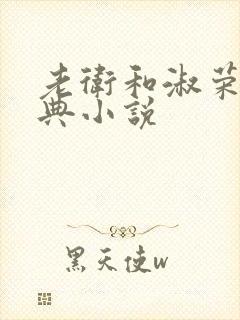 老衛和淑荣
典小説
黑天使w